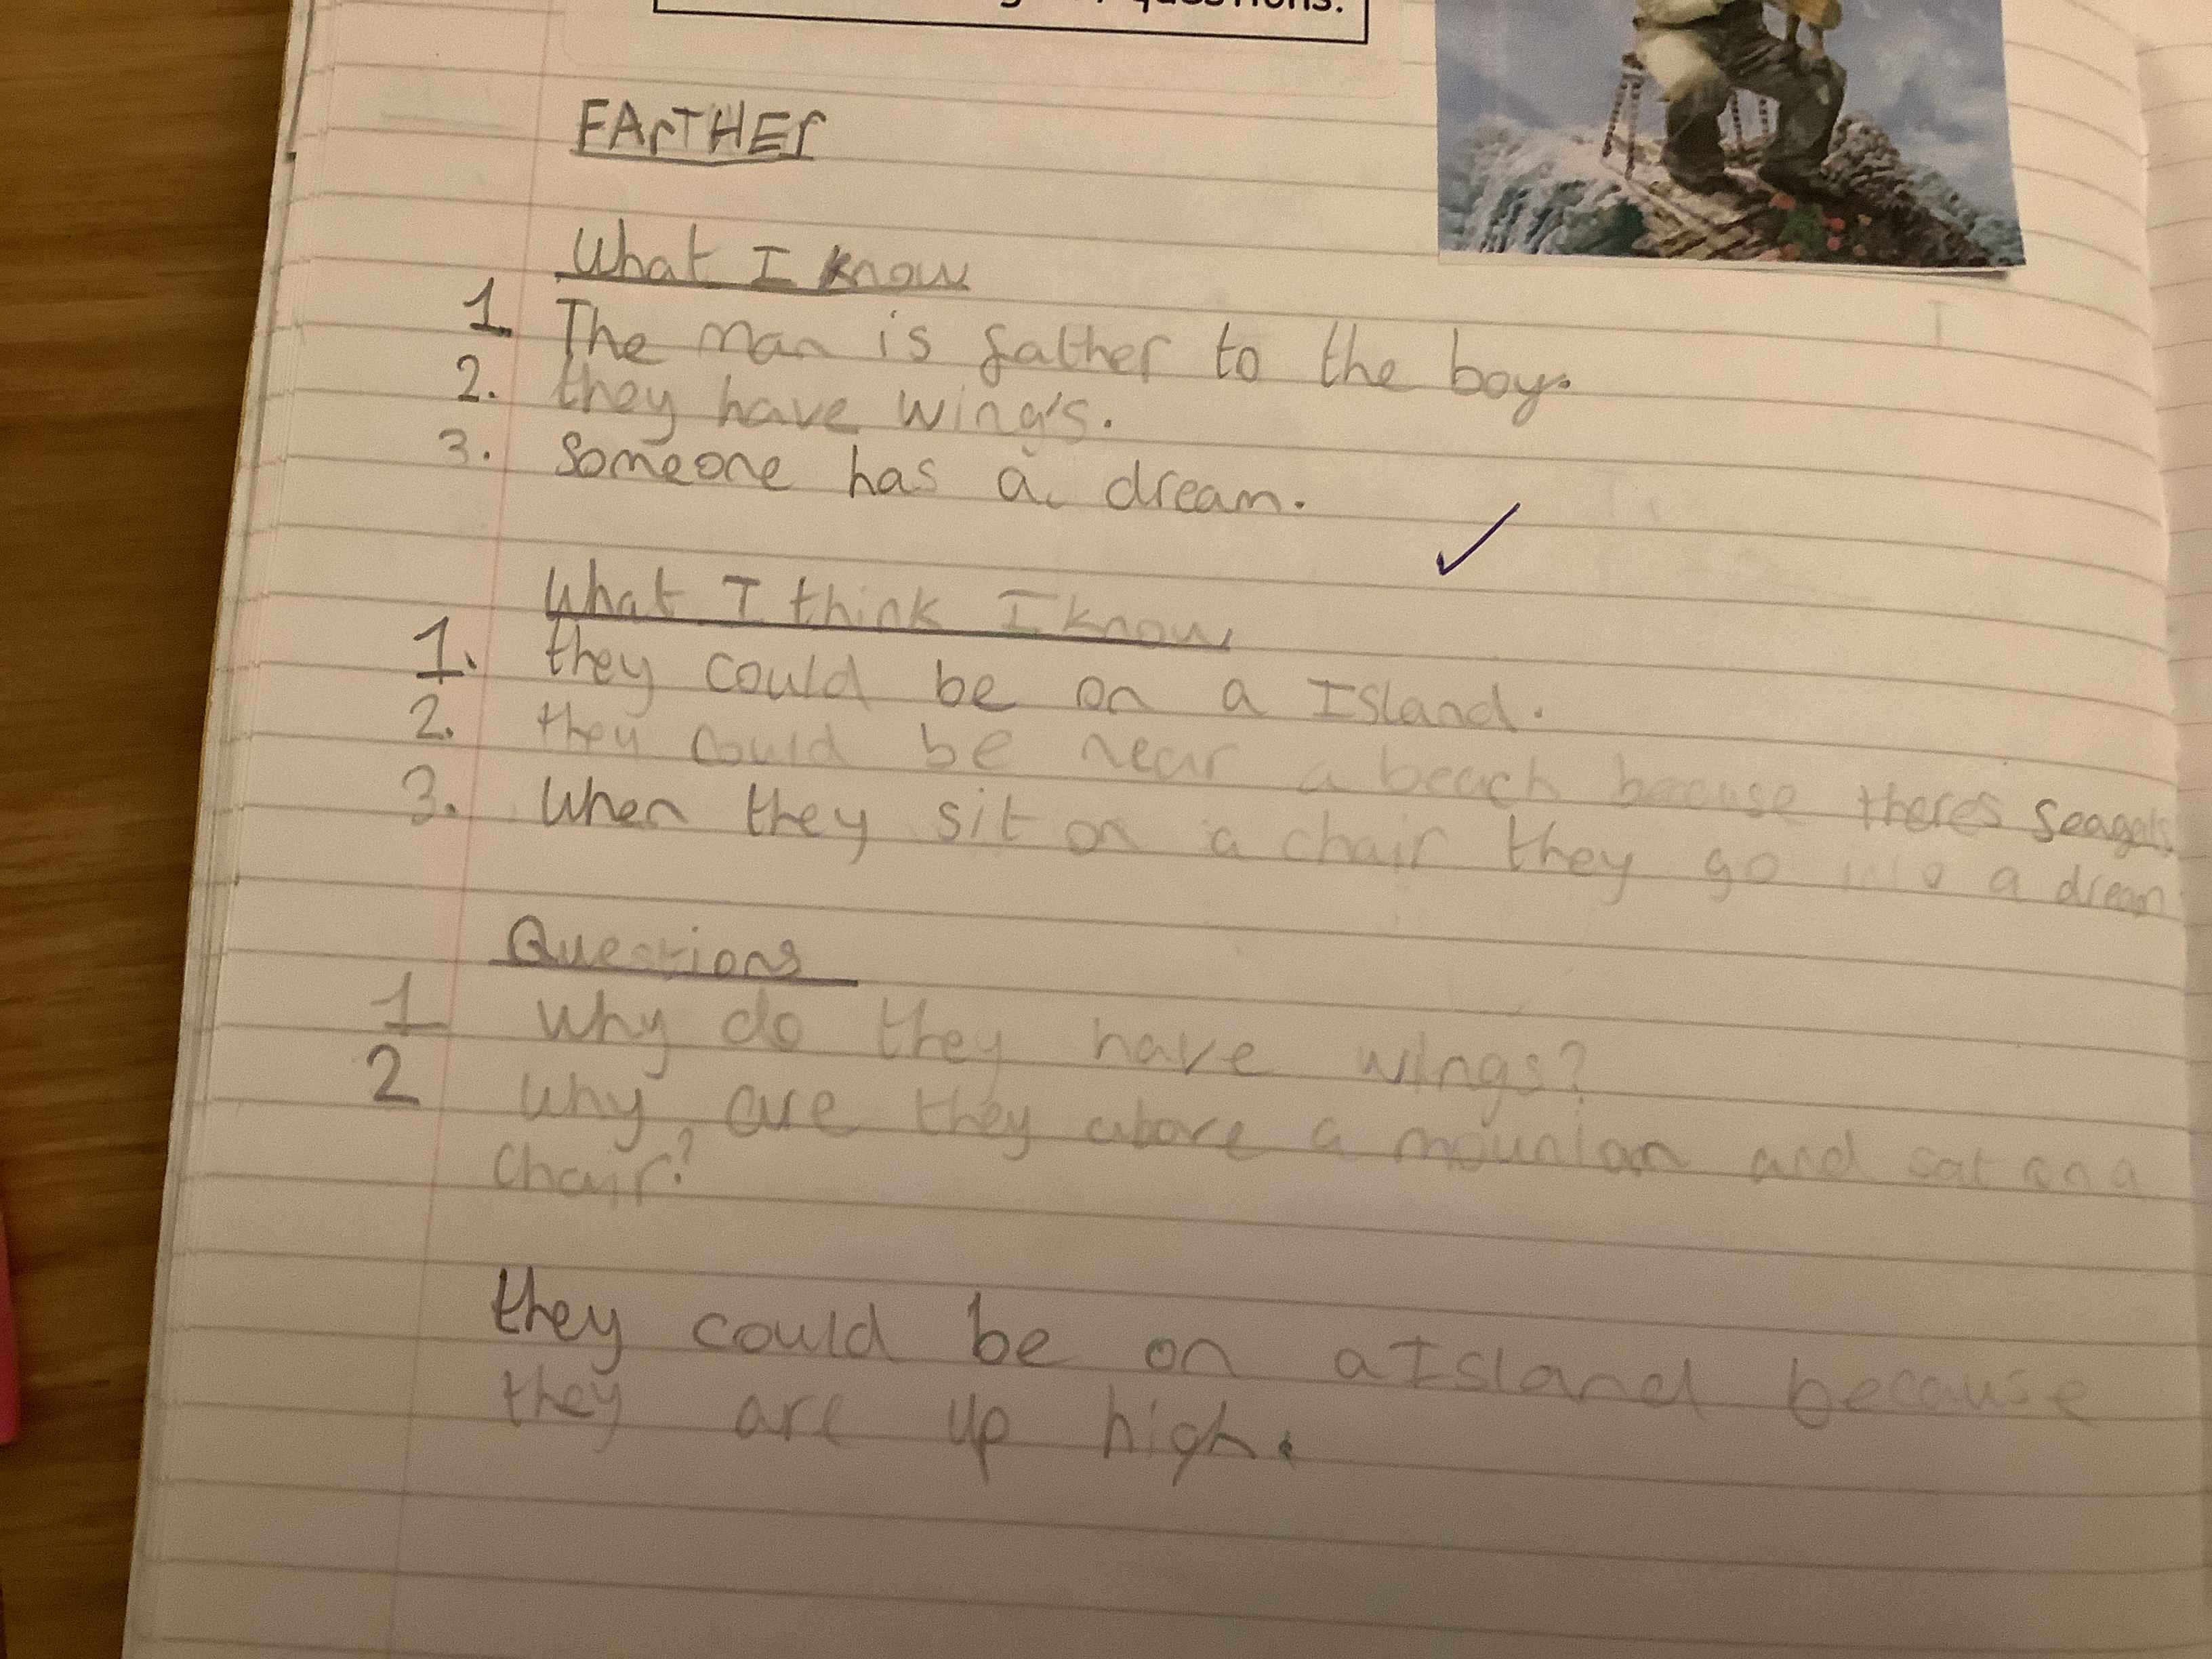 questions.
FArTHEr
What I know
1. The man is father to the boy.
2. they have wing's.
3. Someone has a dream.
What I think I know
1. they could be on a Island.
2. they could be near a beach because there's seagals.
3. When they sit on a chair they go into a dream
Questions
1 Why do they have wings?
2 Why are they above a mountan and sat on a
chair?
they could be on a Island because
they are up high.